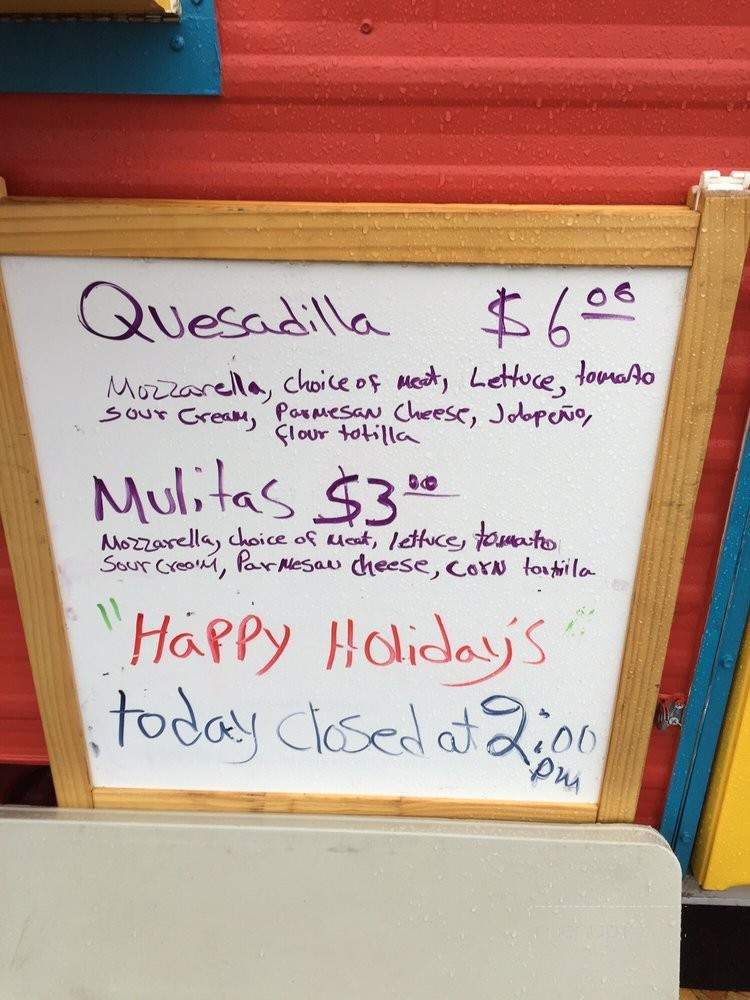 Quesadilla $6 00
Mozzarella, choice of meat, Lettuce, tomato
sour Cream, Parmesan Cheese, Jalapeño,
flour totilla
Mulitas $3 00
Mozzarella, choice of meat, lettuce, tomato
Sour Cream, Parmesan cheese, corn tortilla
"Happy Holiday's"
today closed at 2:00
pm